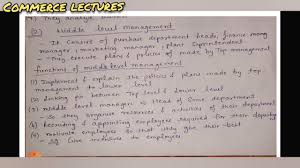 COMMERCE LECTURES
→ They analyse
(2) Middle level management
→ It consists of purchase department heads, finance mang
manager, marketing manager, plant superintendent
→ They execute plans & policies made by Top management
functions of middle level management
(1) Implement & explain the policies & plans made by top
management to lower level
(2) linking pin between Top level & lower level
(3) middle level manager is Head of some department
→ So they organise resources & activities of their department
(4) Recruiting & appointing employees required for their department
(5) motivate employees so that they give their best
→ give incentives to employees